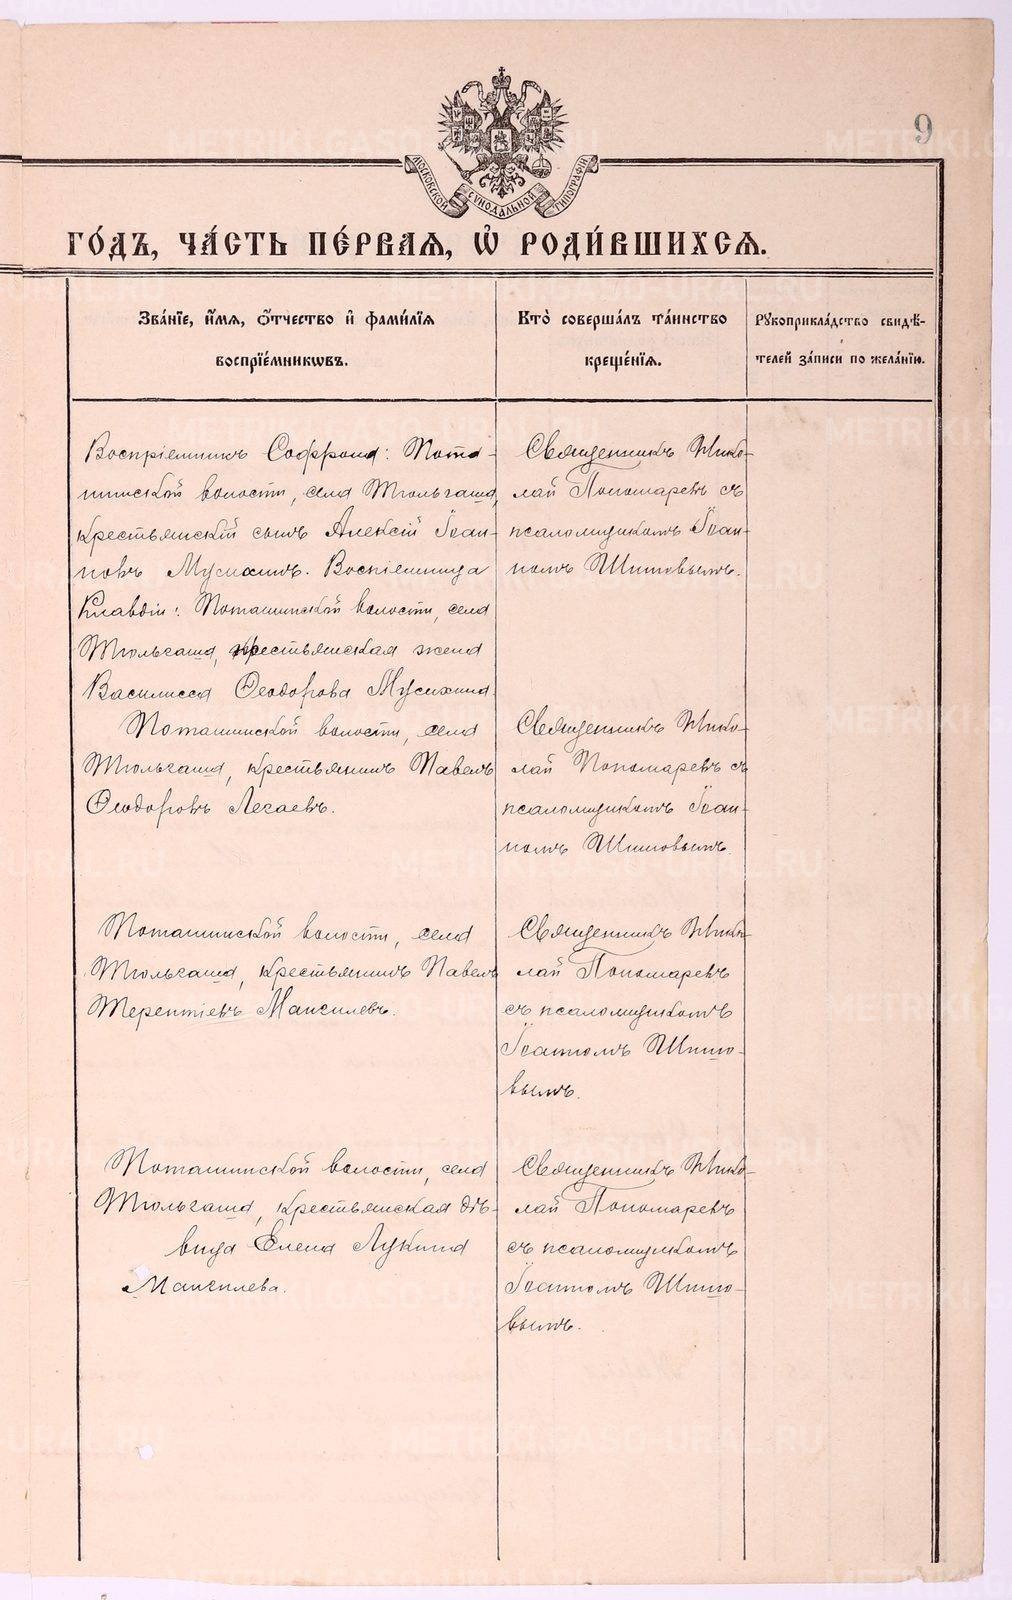 9
МОСКОВСКОЙ СѴНОДАЛЬНОЙ ТИПОГРАФІИ
ГО́ДЪ, ЧА́СТЬ ПЕ́РВАЯ, Ѽ РОДИ́ВШИХСЯ.
Зва́нїе, и҆́мѧ, ѻ҆́тчество и҆ фами́лїѧ
воспрїе́мникѡвъ.
Кто̀ соверша́лъ та́инство
креще́нїѧ.
Рꙋкоприкла́дство свидѣ́-
телей за́писи по жела́нїю.
Воспріемникъ Софрона: Пота-
шинской волости, села Тюльгаша,
крестьянскій сынъ Алексій Іоан-
новъ Мусихинъ. Воспіемница
Клавдіи: Поташинской волости, села
Тюльгаша, крестьянская жена
Василисса Ѳеодорова Мусихина.
Священникъ Нико-
лай Пономаревъ съ
псаломщикомъ Іоан-
номъ Шитовымъ.
Поташинской волости, села
Тюльгаша, крестьянинъ Павелъ
Ѳеодоровъ Легаевъ.
Священникъ Нико-
лай Пономаревъ съ
псаломщикомъ Іоан-
номъ Шитовымъ.
Поташинской волости, села
Тюльгаша, крестьянинъ Павелъ
Терентіевъ Мангилевъ.
Священникъ Нико-
лай Пономаревъ
съ псаломщикомъ
Іоанномъ Шито-
вымъ.
Поташинской волости, села
Тюльгаша, крестьянская дѣ-
вица Елена Лукина
Мангилева.
Священникъ Нико-
лай Пономаревъ
съ псаломщикомъ
Іоанномъ Шито-
вымъ.
METRIKI.GASO-URAL.RU